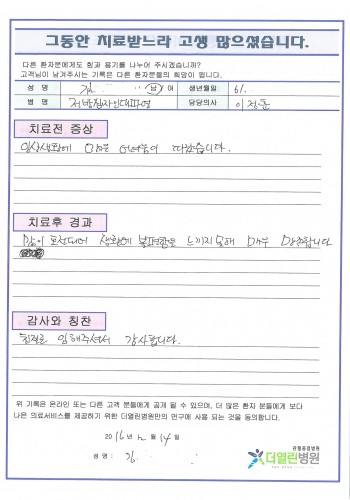 그동안 치료받느라 고생 많으셨습니다.
다른 환자분에게도 힘과 용기를 나누어 주시겠습니까?
고객님이 남겨주시는 기록은 다른 환자분들의 희망이 됩니다.
성 명 김 남 여 생년월일 61.
병 명 전방십자인대파열 담당의사 이정훈
치료전 증상
일상생활에 많은 어려움이 따랐습니다.
치료후 경과
많이 호전되어 생활에 불편함을 느끼지 못해 매우 만족합니다
감사와 칭찬
친절로 임해주셔서 감사합니다.
위 기록은 온라인 또는 다른 고객 분들에게 공개 될 수 있으며, 더 많은 환자 분들에게 보다
나은 의료서비스를 제공하기 위한 더열린병원만의 연구에 사용 되는 것을 동의합니다.
2016년 12월 14일
성 명 : 김
관절중점병원
더열린병원